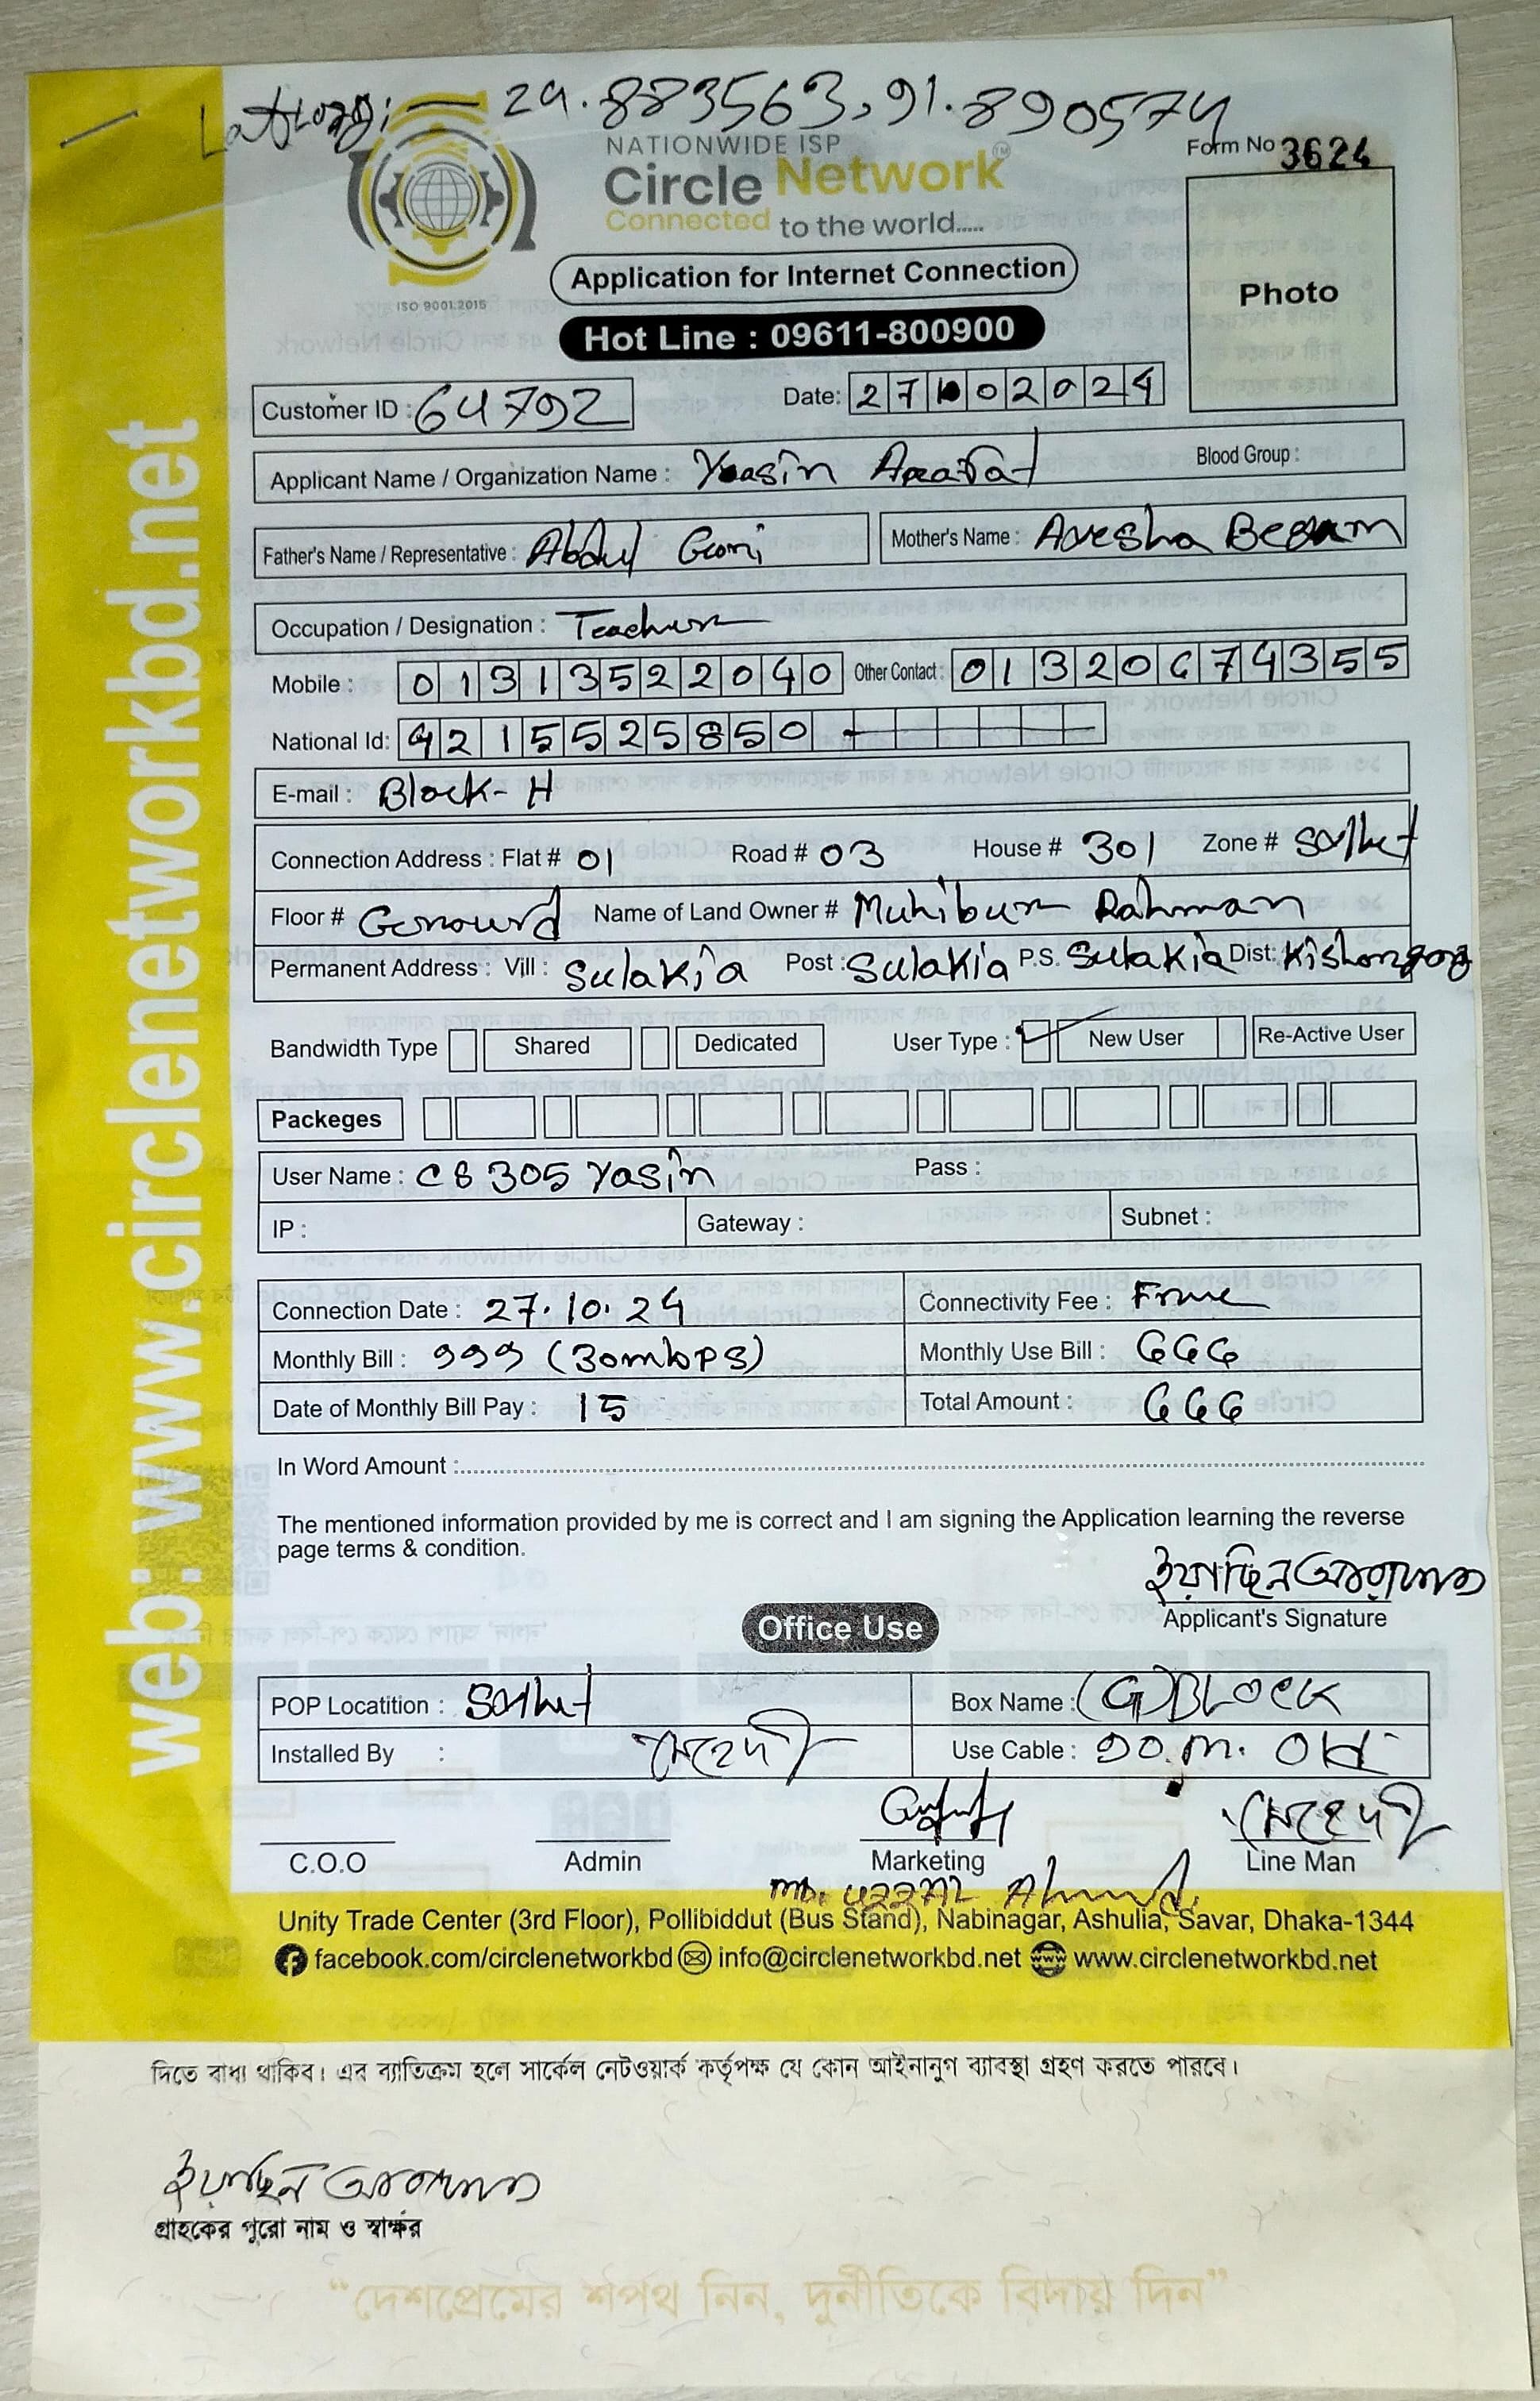 Lat Long: — 24.883563, 91.890574
NATIONWIDE ISP
Circle Network™
Connected to the world.....
ISO 9001:2015
Form No 3624
Photo
Application for Internet Connection
Hot Line : 09611-800900
Customer ID : 64792 Date: 27102024
Applicant Name / Organization Name : Yeasin Arafat Blood Group :
Father's Name / Representative : Abdul Goni Mother's Name : Ayesha Begam
Occupation / Designation : Teacher
Mobile : 01313522040 Other Contact : 01320674355
National Id: 4215525850
E-mail : Block- H
Connection Address : Flat # 01 Road # 03 House # 301 Zone # Sylhet
Floor # Gronurd Name of Land Owner # Muhibur Rahman
Permanent Address : Vill : Sulakia Post : Sulakia P.S. Sulakia Dist: Kishorgog
Bandwidth Type Shared Dedicated User Type : ✓ New User Re-Active User
Packeges
User Name : CS305 Yasin Pass :
IP : Gateway : Subnet :
Connection Date : 27.10.24 Connectivity Fee : Free
Monthly Bill : 999 (30mbps) Monthly Use Bill : 666
Date of Monthly Bill Pay : 15 Total Amount : 666
In Word Amount :
The mentioned information provided by me is correct and I am signing the Application learning the reverse
page terms & condition.
ইয়াছিন আরাফাত
Applicant's Signature
Office Use
POP Locatition : Sylhet Box Name : (G) BLOCK
Installed By : মেহেদী Use Cable : 30.m. Old
মেহেদী
C.O.O Admin Marketing Line Man
Md. Ahmed.
Unity Trade Center (3rd Floor), Pollibiddut (Bus Stand), Nabinagar, Ashulia, Savar, Dhaka-1344
facebook.com/circlenetworkbd info@circlenetworkbd.net www.circlenetworkbd.net
web: www.circlenetworkbd.net
দিতে বাধ্য থাকিব। এর ব্যাতিক্রম হলে সার্কেল নেটওয়ার্ক কর্তৃপক্ষ যে কোন আইনানুগ ব্যাবস্থা গ্রহণ করতে পারবে।
ইয়াছিন আরাফাত
গ্রাহকের পুরো নাম ও স্বাক্ষর
“দেশপ্রেমের শপথ নিন, দুর্নীতিকে বিদায় দিন”